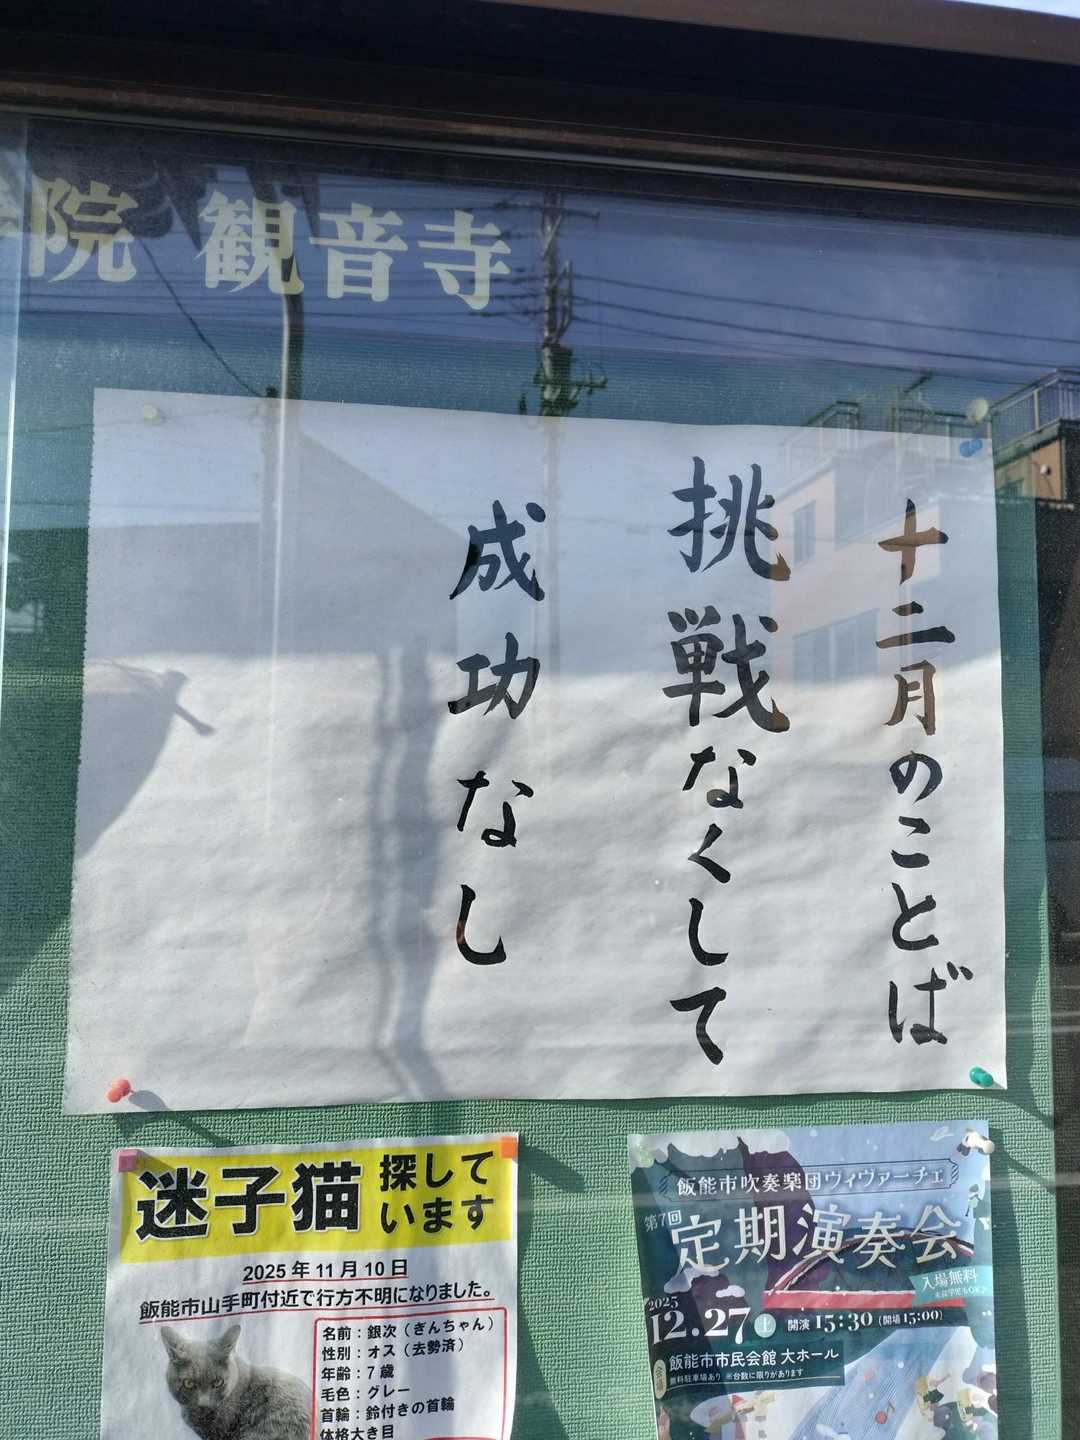 院 観音寺
十二月のことば
挑戦なくして
成功なし
迷子猫 探して
います
2025年11月10日
飯能市山手町付近で行方不明になりました。
名前：銀次（ぎんちゃん）
性別：オス（去勢済）
年齢：7歳
毛色：グレー
首輪：鈴付きの首輪
体格大き目
飯能市吹奏楽団ヴィヴァーチェ
第7回
定期演奏会
入場無料
2025
12.27 土 開演 15:30 (開場 15:00)
会場 飯能市市民会館 大ホール
無料駐車場あり ※台数に限りがあります